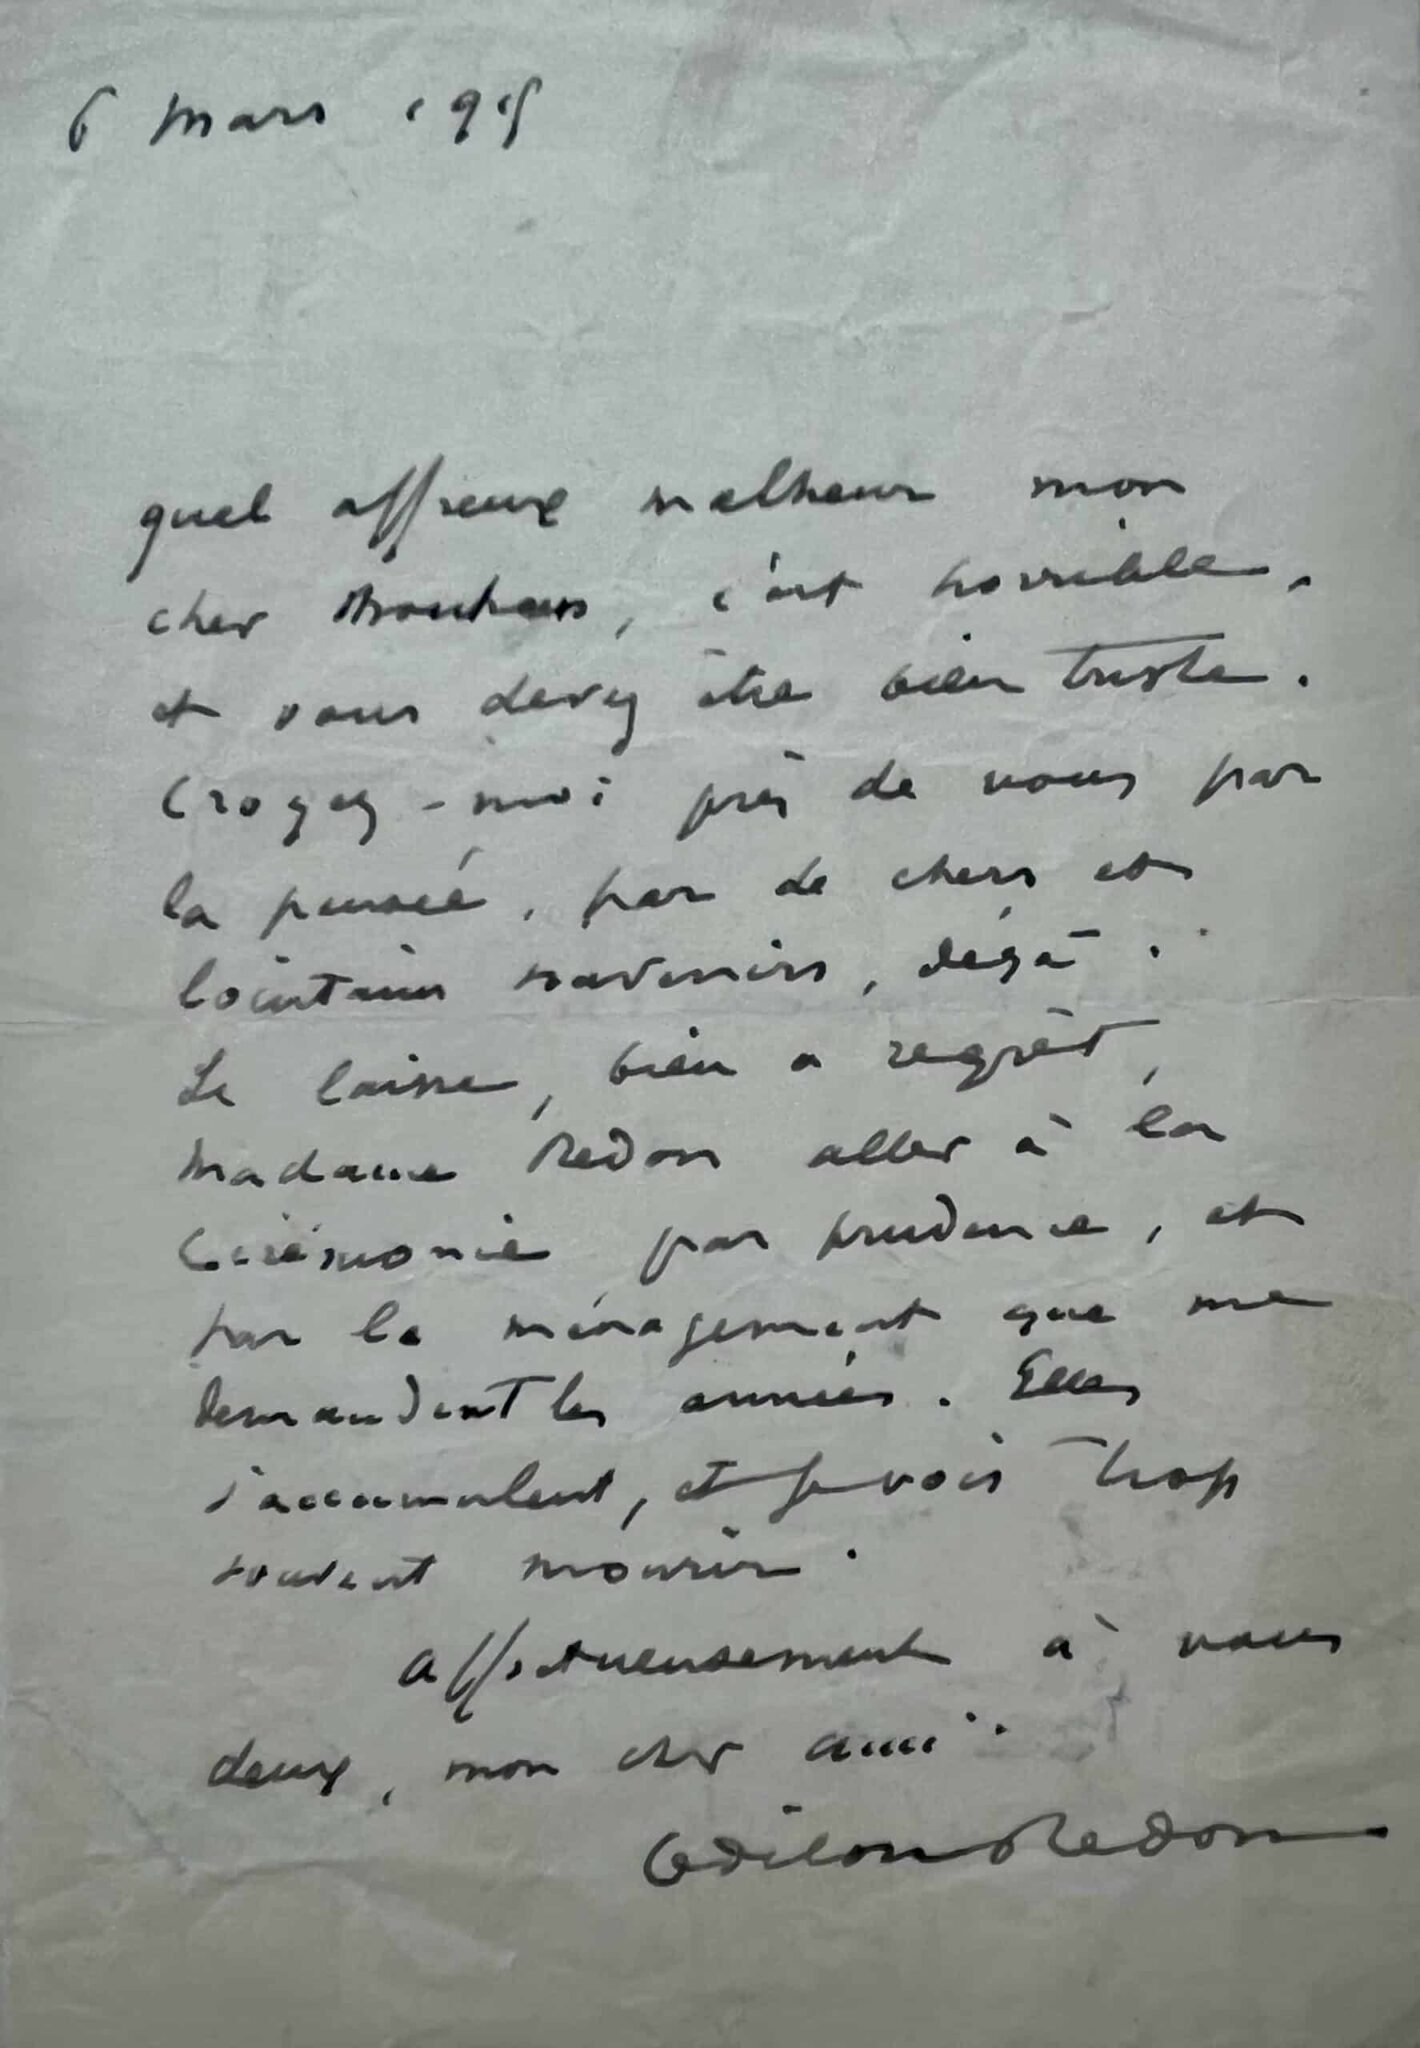 6 mars 1915
quel affreux malheur mon
cher, c'est horrible,
et vous devez être bien triste.
Croyez-moi près de vous par
la pensée, par de chers et
lointains souvenirs, déjà.
Je laisse, bien a regrèt,
Madame Redon aller à la
Cérémonie par prudence, et
par le ménagement que me
demandent les années. Elles
s'accumulent, et je vois trop
souvent mourir.
Affectueusement à vous
deux, mon cher ami.
Odilon Redon